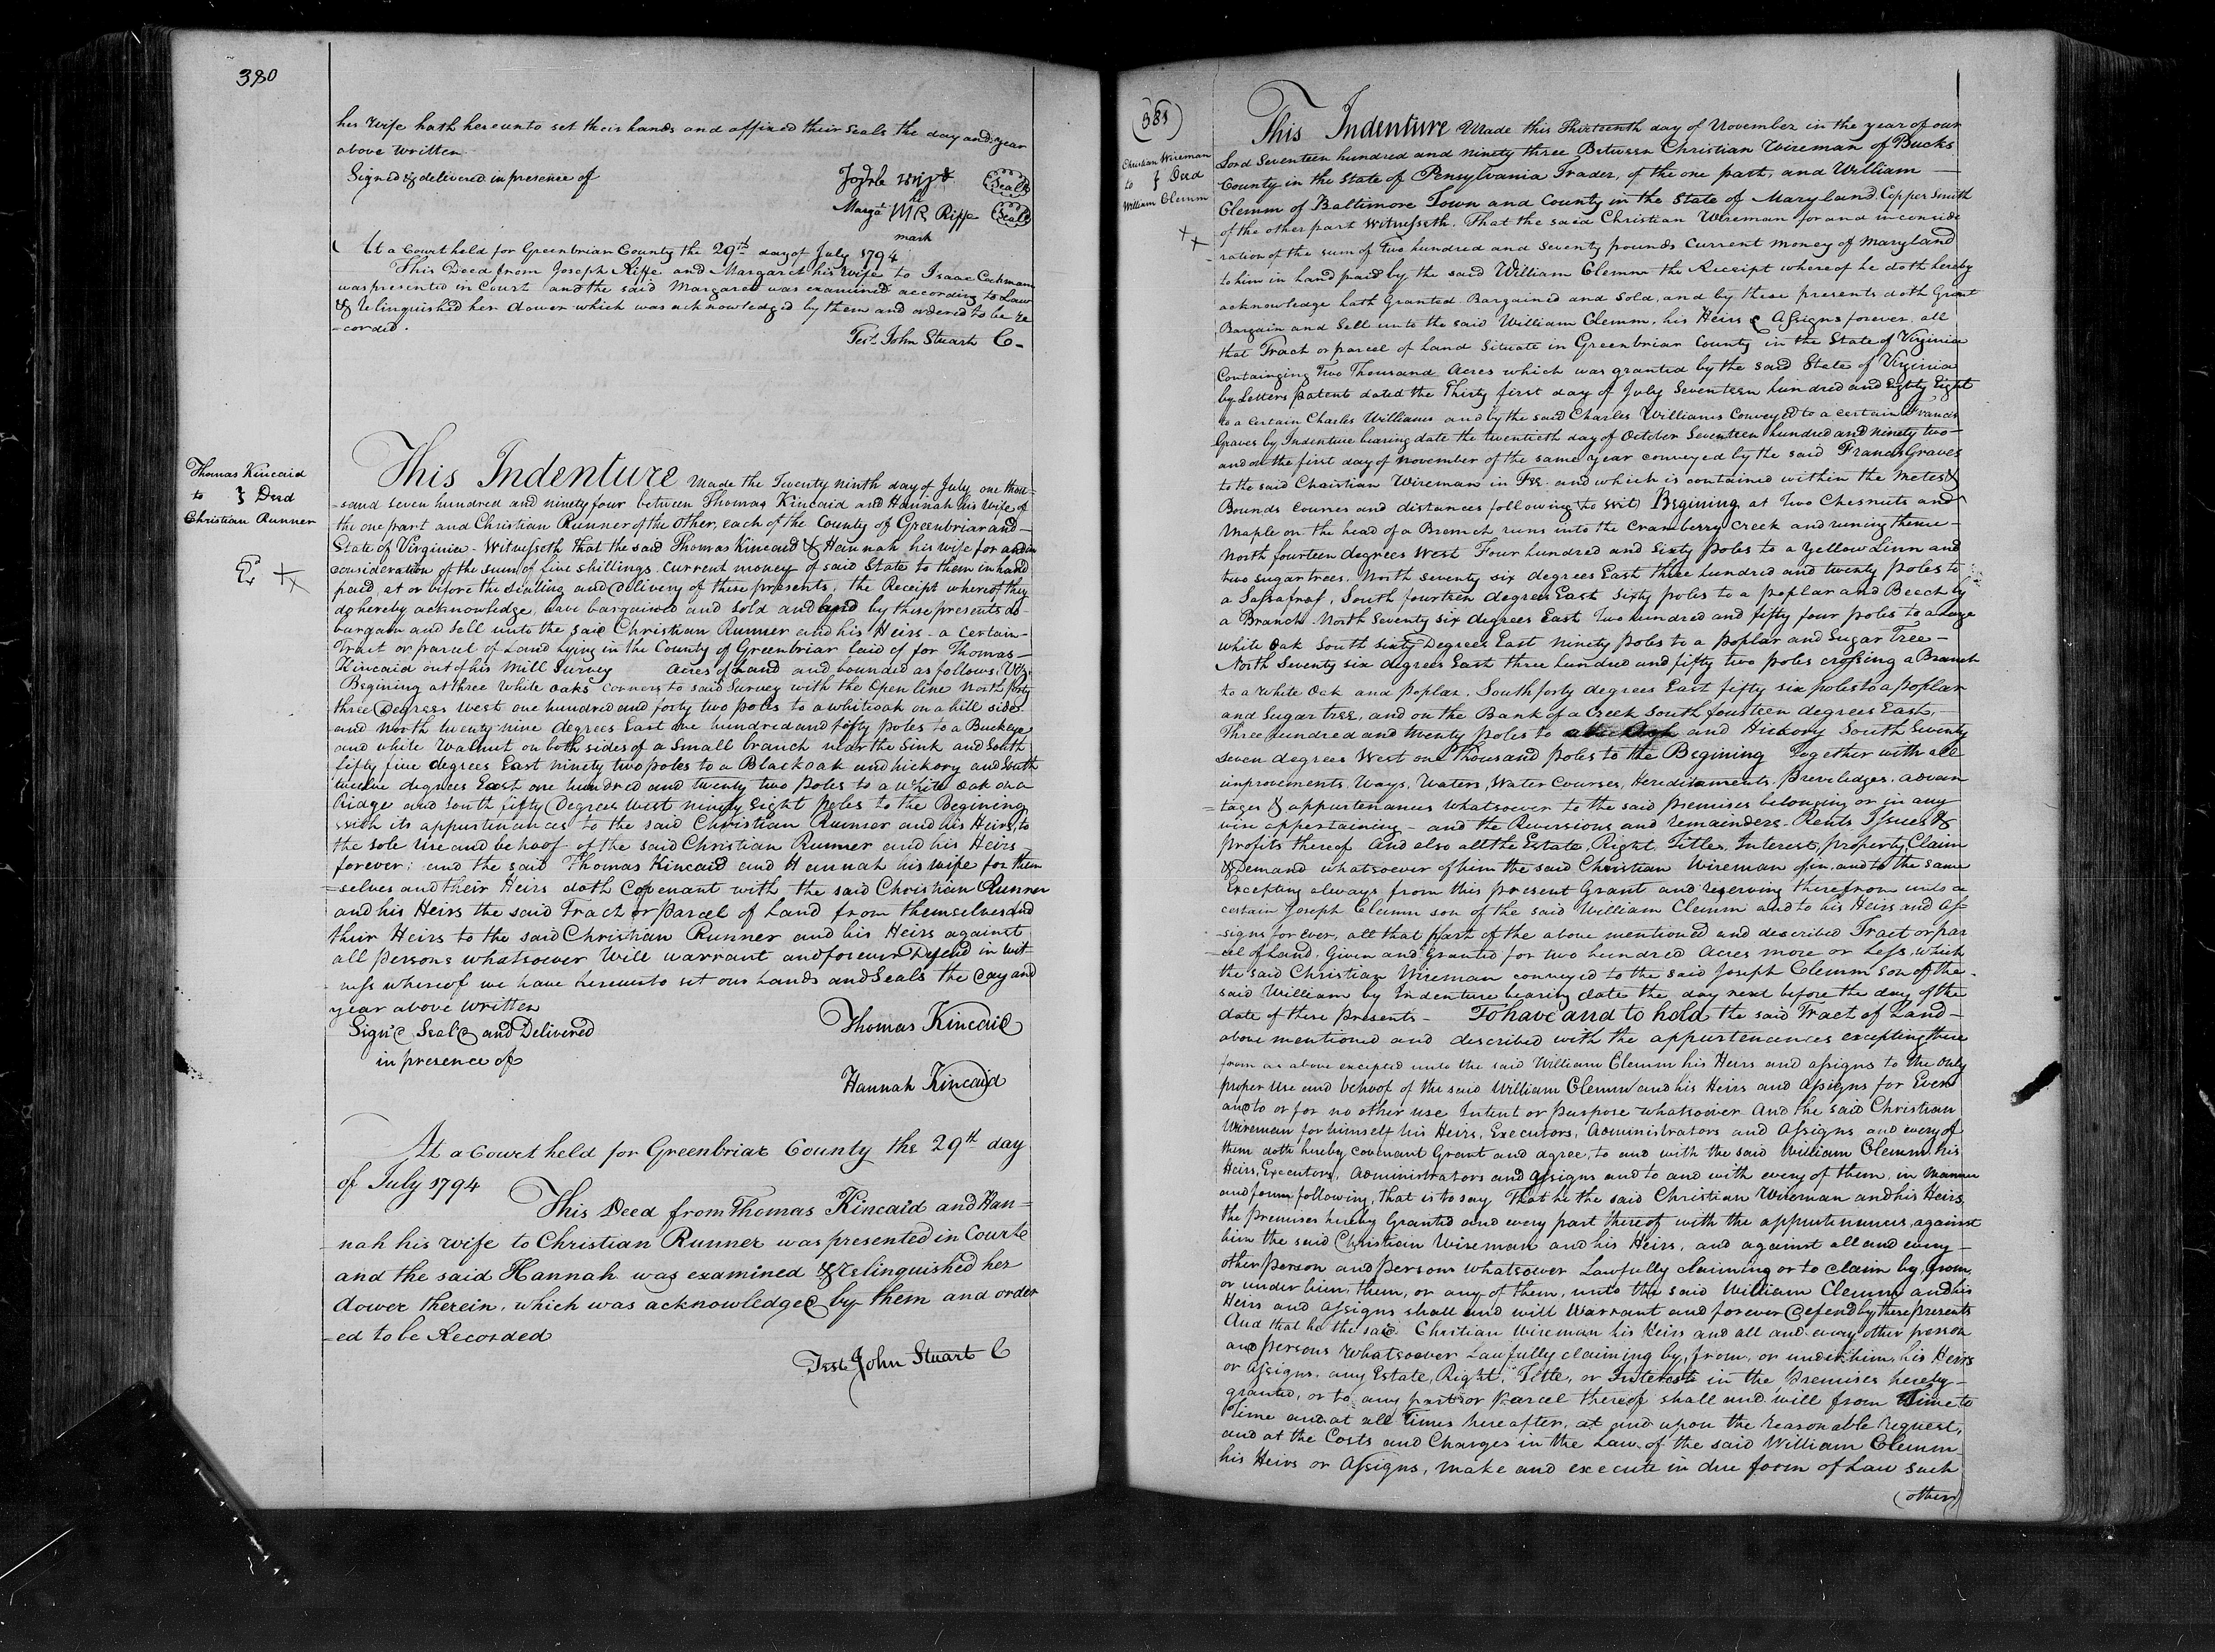 380
her Wife hath hereunto set their hands and affixed their Seals the day and year
above Written
Signed & delivered in presence of
Seal
Margt MR Riffe Seal
mark
At a Court held for Greenbriar County the 29th day of July 1794
This Deed from Joseph Riffe and Margaret his Wife to Isaac
was presented in Court and the said Margaret was examined according to Law
& relinquished her dower which was acknowledged by them and ordered to be re
-corded.
Test John Stuart C-
Thomas Kincaid
to } Deed
Christian Runner
This Indenture Made the Twenty ninth day of July one thou=
=sand seven hundred and ninety four between Thomas Kincaid and Hannah his Wife of
the one part and Christian Runner of the other, each of the County of Greenbriar and-
State of Virginia - Witnesseth that the said Thomas Kincaid & Hannah his wife for and in
consideration of the sum of five shillings Current money of said State to them in hand
paid, at or before the Sealing and delivery of these presents, the Receipt whereof they
do hereby acknowledge, have bargained and sold and by these presents do-
bargain and sell unto the said Christian Runner and his Heirs - a certain-
Tract or parcel of Land lying in the County of Greenbriar laid of for Thomas-
Kincaid out of his Mill Survey Acres of Land and bounded as follows, Viz.
Begining at three White oaks corners to said Survey with the Open line North forty
three Degrees West one hundred and forty two poles to a white oak on a hill side
and North twenty nine degrees East one hundred and fifty poles to a Buckeye
and white Walnut on both sides of a small branch near the Sink and South
fifty five degrees East ninety two poles to a Black oak and hickory and South
twelve degrees East one hundred and twenty two poles to a White oak on a
Ridge and South fifty Degrees West ninety Eight poles to the Begining
with its appurtenances to the said Christian Runner and his Heirs, to
the sole Use and behoof of the said Christian Runner and his Heirs
forever; and the said Thomas Kincaid and Hannah his wife for them
=selves and their Heirs doth Covenant with the said Christian Runner
and his Heirs the said Tract or parcel of Land from themselves and
their Heirs to the said Christian Runner and his Heirs against
all persons whatsoever Will warrant and forever Defend in wit-
-ness whereof we have hereunto set our hands and Seals the day and
year above written
Sign'd Seal'd and Delivered
in presence of
Thomas Kincaid
Hannah Kincaid
At a Court held for Greenbriar County the 29th day
of July 1794
This Deed from Thomas Kincaid and Han=
nah his wife to Christian Runner was presented in Court
and the said Hannah was examined & relinquished her
dower therein, which was acknowledged by them and order
-ed to be Recorded
Test John Stuart C
(381)
Christian Wireman
to } Deed
William Clemm
This Indenture Made this Thirteenth day of November in the year of our
Lord Seventeen hundred and ninety three Between Christian Wireman of Bucks
County in the State of Pensylvania Trader, of the one part, and William
Clemm of Baltimore Town and County in the State of Maryland Copper Smith
of the other part Witnesseth. That the said Christian Wireman for and in conside
ration of the sum of Two hundred and Seventy pounds Current money of Maryland
to him in hand paid by the said William Clemm the Receipt whereof he doth hereby
acknowledge hath Granted Bargained and Sold, and by these presents doth Grant
Bargain and Sell unto the said William Clemm, his Heirs & Assigns forever all
that Tract or parcel of Land Situate in Greenbriar County in the State of Virginia
Containging Two Thousand Acres which was granted by the said State of Virginia
by Letters patent dated the Thirty first day of July Seventeen hundred and Eighty Eight
to a Certain Charles Williams and by the said Charles Williams Conveyed to a certain Francis
Graves by Indenture bearing date the twentieth day of October Seventeen hundred and ninety two-
and on the first day of november of the same year conveyed by the said Francis Graves
to the said Christian Wireman in Fee and which is contained within the Metes &
Bounds Courses and distances following (to wit) Begining at Two Chesnuts and
Maple on the head of a Branch runs into the Cranberry Creek and runing thence-
North fourteen degrees West Four hundred and Sixty poles to a Yellow Linn and
two sugar trees. North Seventy six degrees East three hundred and twenty poles to
a Sassafras, South fourteen degrees East Sixty poles to a poplar and Beech by
a Branch North Seventy six degrees East Two hundred and fifty four poles to a large
white Oak South Sixty Degrees East Ninety poles to a poplar and Sugar Tree-
North Seventy six degrees East three hundred and fifty two poles crossing a Branch
to a White Oak and Poplar. South forty degrees East fifty six poles to a poplar
and Sugar tree, and on the Bank of a Creek South fourteen degrees East,
Three hundred and twenty poles to and Hickory South Seventy
Seven degrees West one Thousand poles to the Begining Together with all
improvements, Ways, Waters, Water Courses, Hereditaments, Previledges, advan
=tages & appurtenances whatsoever to the said premises belonging or in any
wise appertaining - and the Reversions and remainders. Rents Issues &
Profits thereof And also all the Estate, Right Title, Interest, property Claim
& Demand whatsoever of him the said Christian Wireman of in and to the same
Excepting always from this present Grant and reserving therefrom unto a
certain Joseph Clemm son of the said William Clemm and to his Heirs and As-
-signs for ever, all that part of the above mentioned and described Tract or par
-cel of Land. Given and Granted for two hundred Acres more or less, which
the said Christian Wireman conveyed to the said Joseph Clemm son of the-
said William by Indenture bearing date the day next before the day of the
date of these presents - To have and to hold the said Tract of Land-
above mentioned and described with the appurtenances excepting there
from as above excepted unto the said William Clemm his Heirs and assigns to the only
proper Use and behoof of the said William Clemm and his Heirs and Assigns for Ever
and to or for no other use Intent or purpose whatsoever And the said Christian
Wireman for himself his Heirs, Executors, Administrators and Assigns and every of
them doth hereby covenant Grant and agree, to and with the said William Clemm his
Heirs, Executors, Administrators and Assigns and to and with every of them, in Manner
and form following, that is to say That he the said Christian Wireman and his Heirs,
the Premises hereby Granted and every part thereof with the appurtenances, against
him the said Christian Wireman and his Heirs, and against all and every-
other person and persons whatsoever Lawfully claiming or to claim by, from,
or under him, them, or any of them, unto the said William Clemm and his
Heirs and Assigns shall and will Warrant and forever Defend by these presents
And that he the said Christian Wireman his Heirs and all and every other person
and persons Whatsoever Lawfully claiming by, from, or under him, his Heirs
or Assigns, any Estate, Right, Title, or Interest in the premises hereby-
granted, or to any part or parcel thereof shall and will from Time to
Time and at all Times hereafter, at and upon the reasonable request,
and at the Costs and Charges in the Law of the said William Clemm
his Heirs or Assigns, Make and execute in due form of Law such
(other)